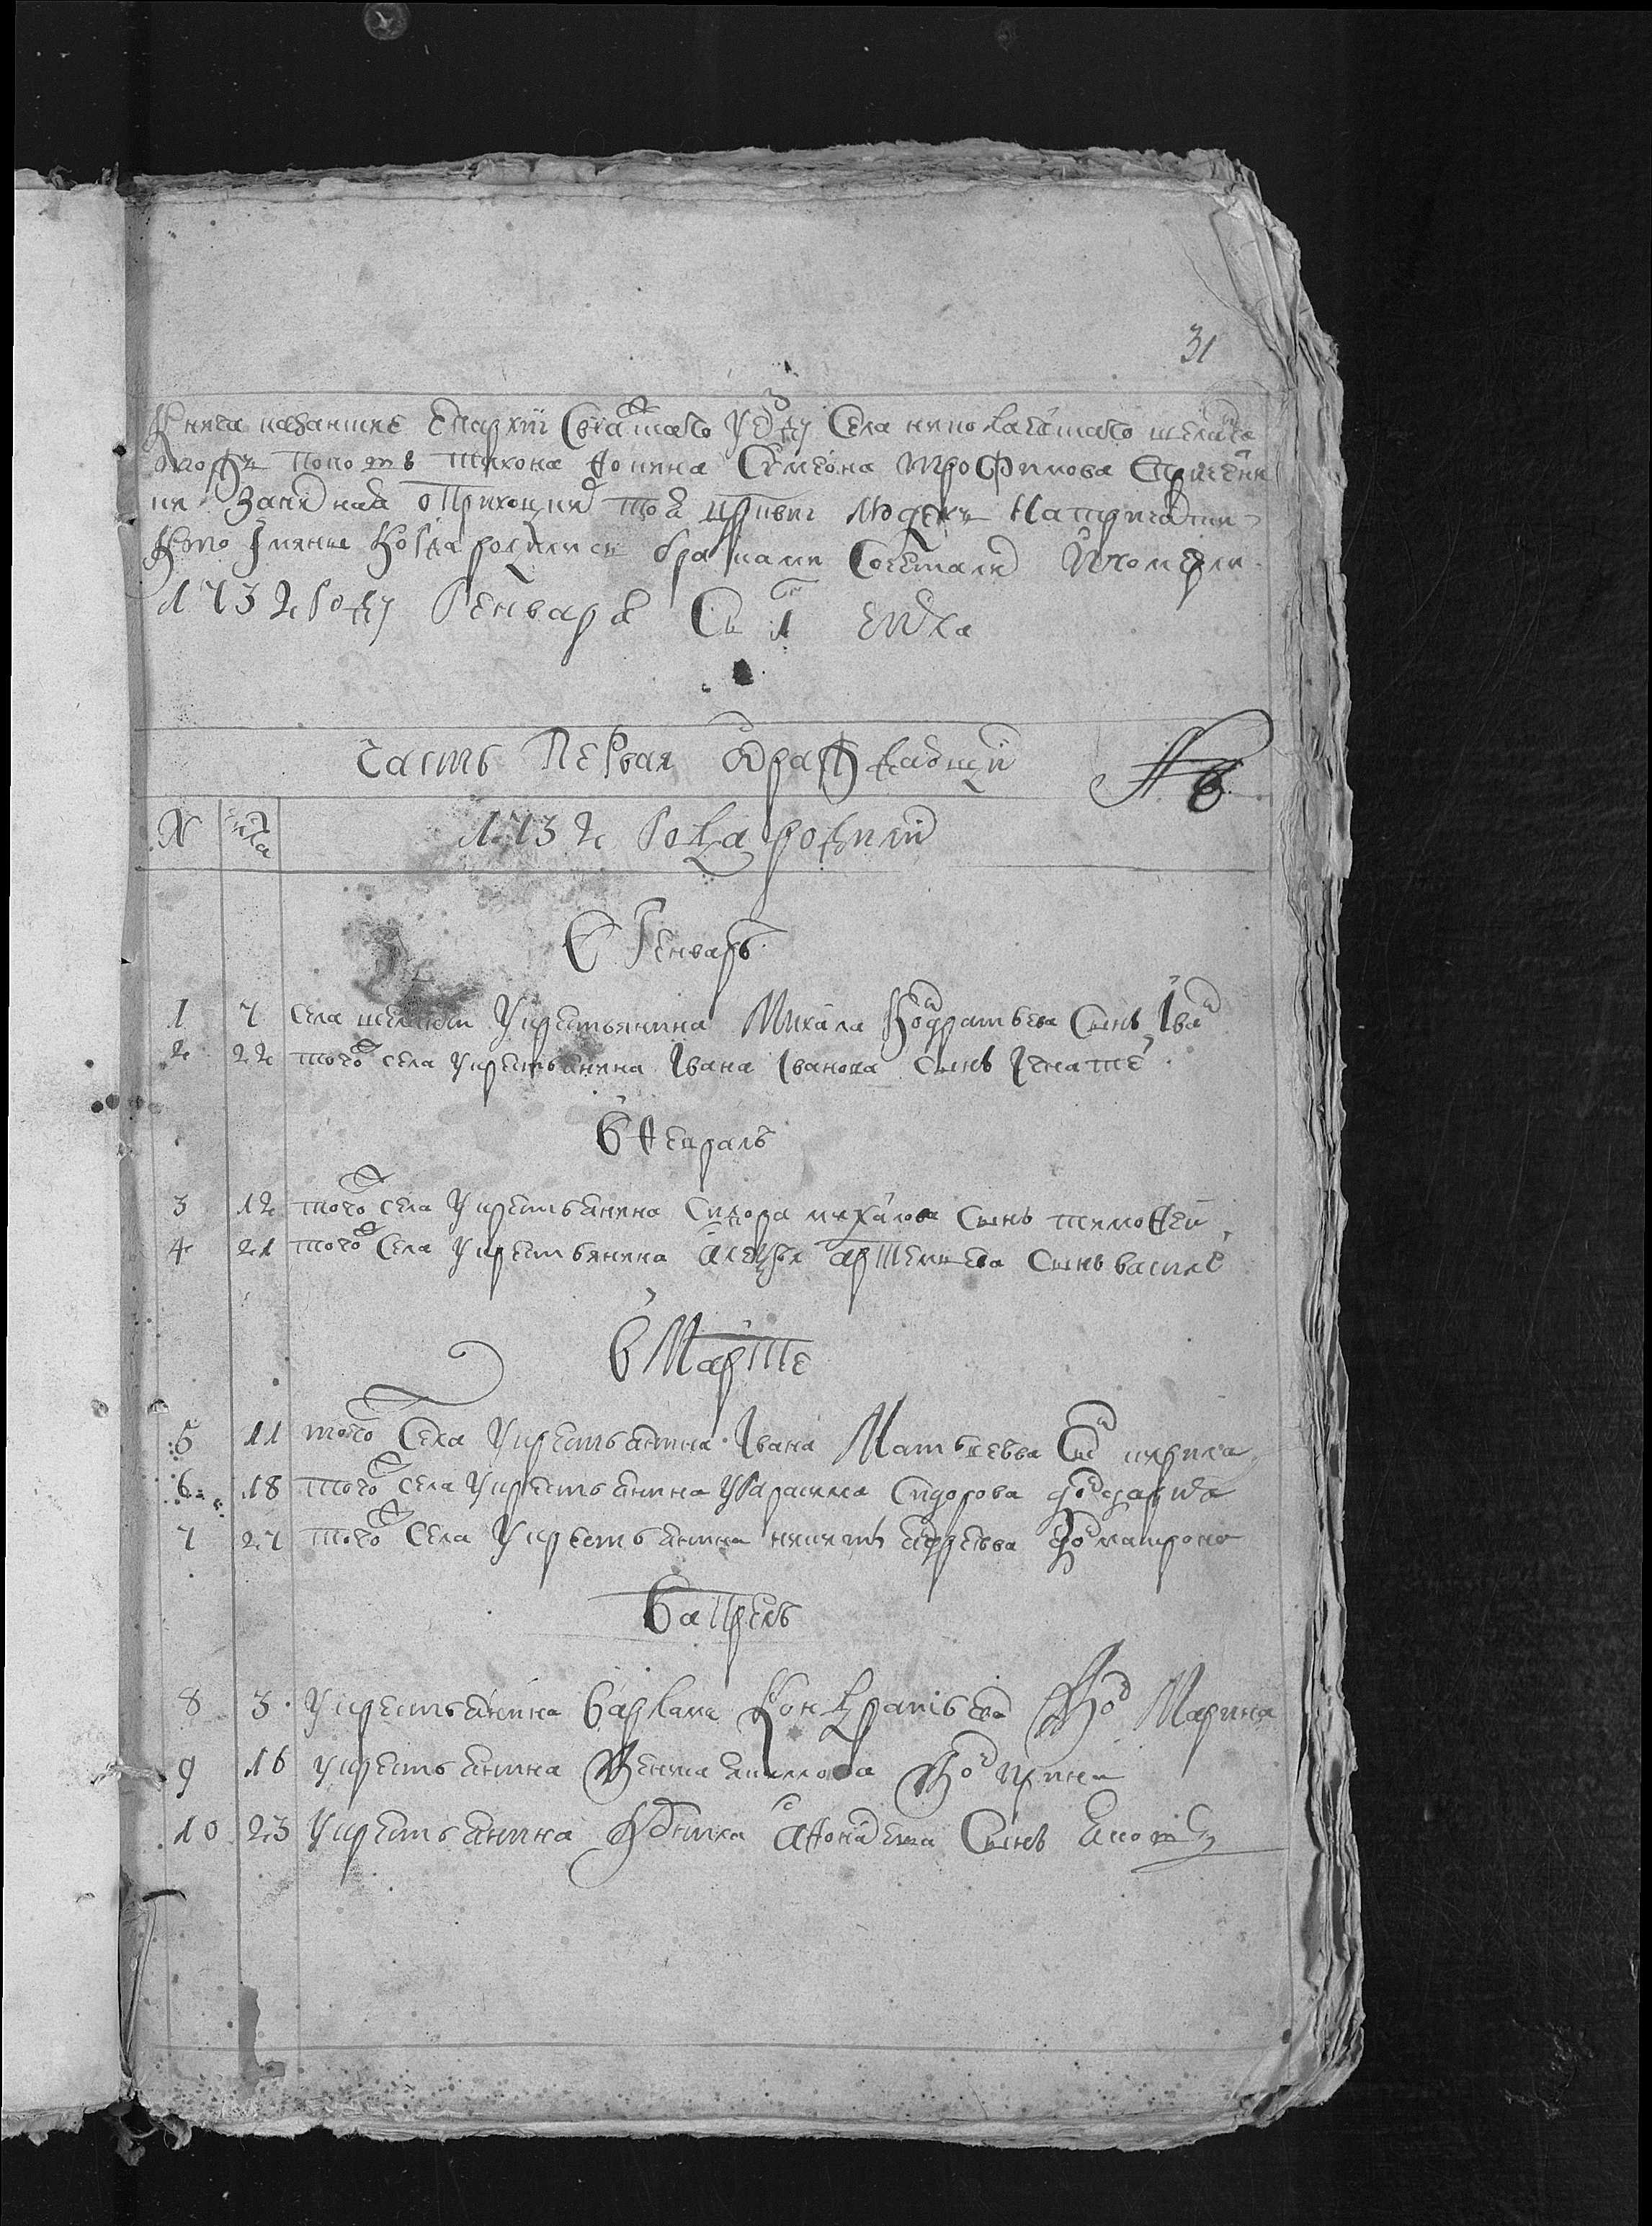 31
Книга казанские епархии Свияжского уезду села николаевского шелангов
тож попов Тихона Фомина Симеона Трофимова
записная о приходских той церкви людех
кто имяны когда родились браками сочетались и померли
1732 году Генваря с 1 числа
Часть первая о раждающихся
№ числа 1732 года родились
В Генваре
1 7 села шеланги у крестьянина Михаила Кондратьева сынъ Iван
2 22 того села у крестьянина Iвана Iванова сынъ Iгнатей
В Феврале
3 12 того села у крестьянина Сидора михайлова сынъ тимофей
4 21 того села у крестьянина алексея артемьева сынъ василей
В Марте
5 11 того села у крестьянина Iвана Матвеева сын кирила
6 18 того села у крестьянина Гарасима Сидорова дочь дарья
7 27 того села у крестьянина никиты андреева дочь матрона
В апреле
8 3 у крестьянина варлама Кондратьева дочь Марина
9 16 у крестьянина дочь ирина
10 23 у крестьянина афонасева сынъ